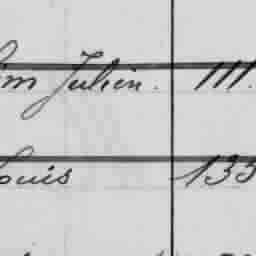 Julien. 111.
ouis 133